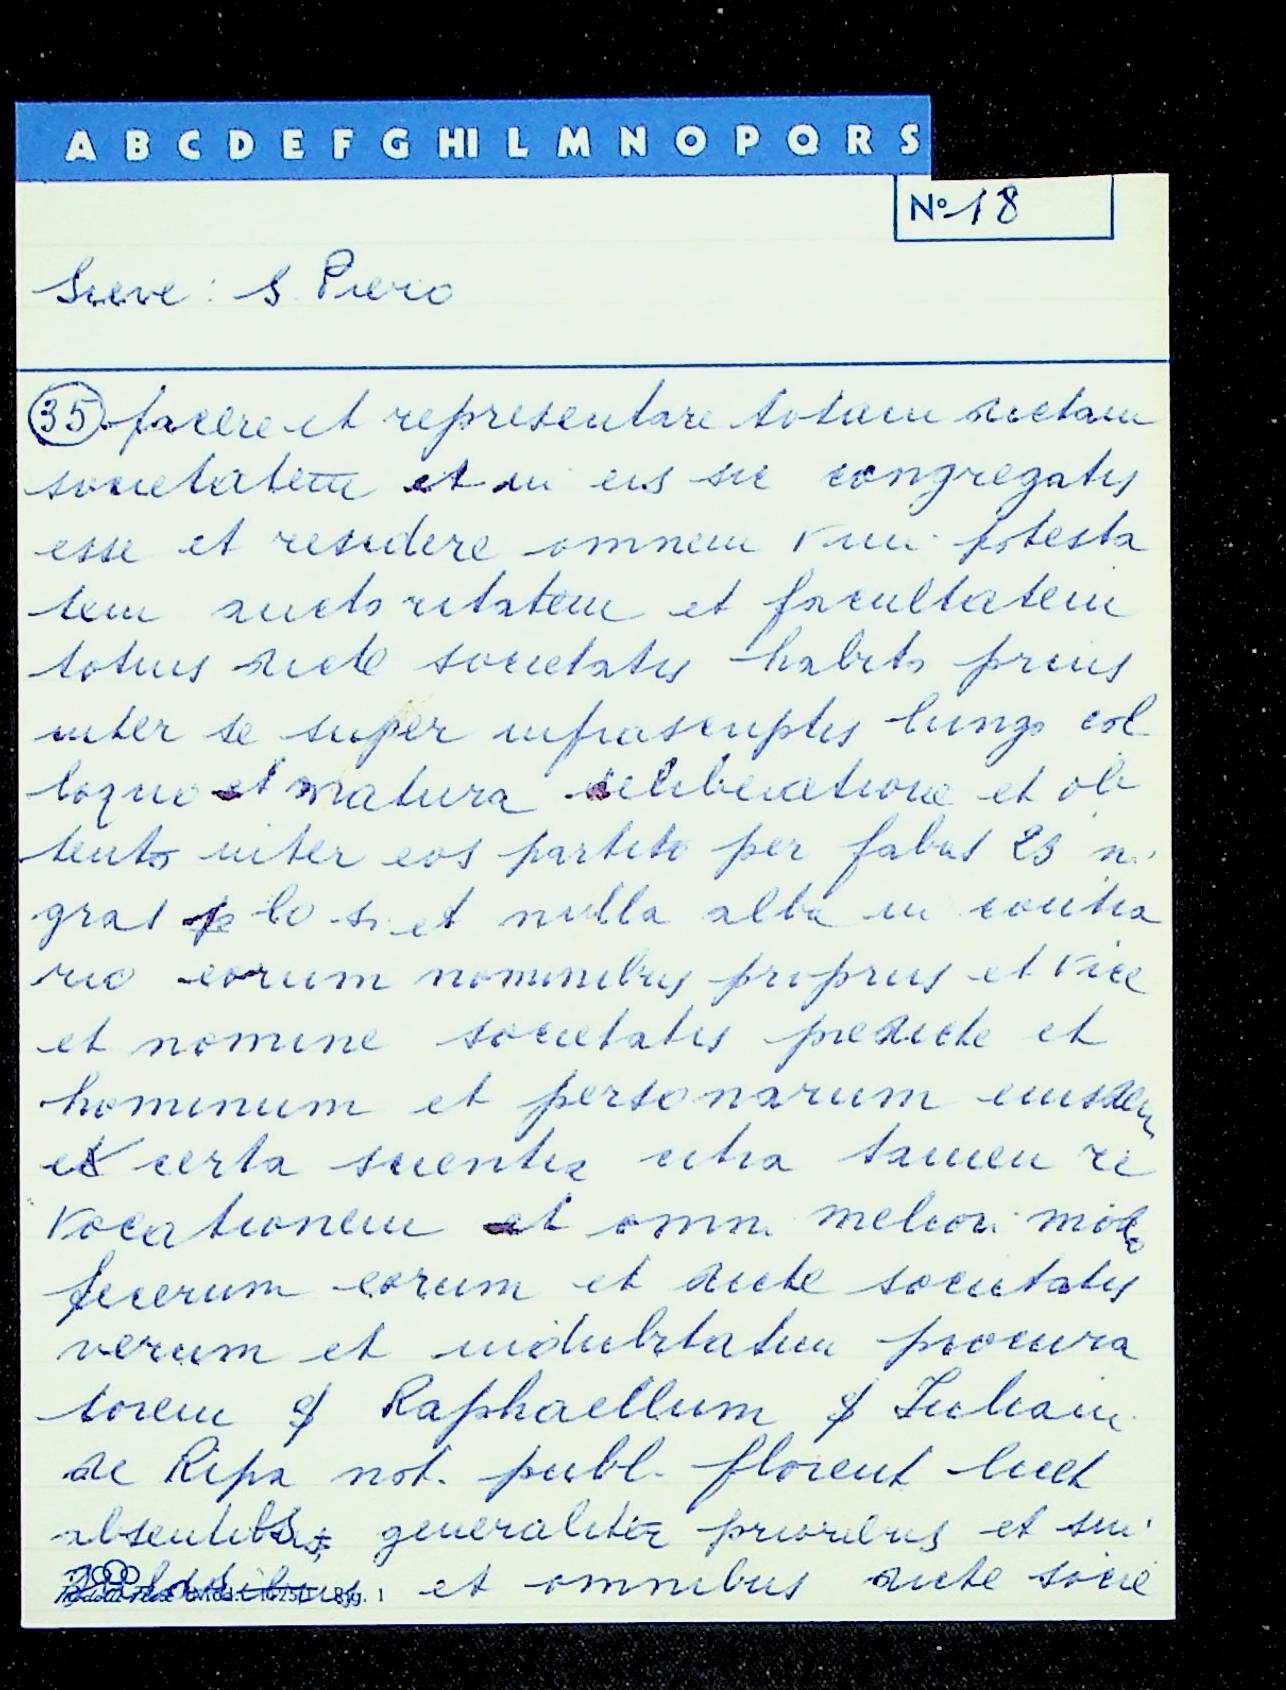 A B C D E F G HI L M N O P Q R S
N° 18
Sieve: S. Piero
35 facere et representare totam dictam
societatem et in eis sic congregatis
esse et residere omnem vim potesta
tem auctoritatem et facultatem
totius dicte societatis habito prius
inter se super infrascriptis lungo col
loquio et matura deliberatione et ob
tento inter eos partito per fabas 23 ni
gras p lo si et nulla alba in contra
rio eorum nominibus propriis et vice
et nomine societatis predicte et
hominum et personarum eiusdem
ex certa scientia citra tamen re
vocationem et omni meliori modo
fecerunt eorum et dicte societatis
verum et indubitatum procura
torem Raphaellum Juliani
de Ripa not. publ. florent licet
absentibus generaliter prioribus et sin
et omnibus dicte socie